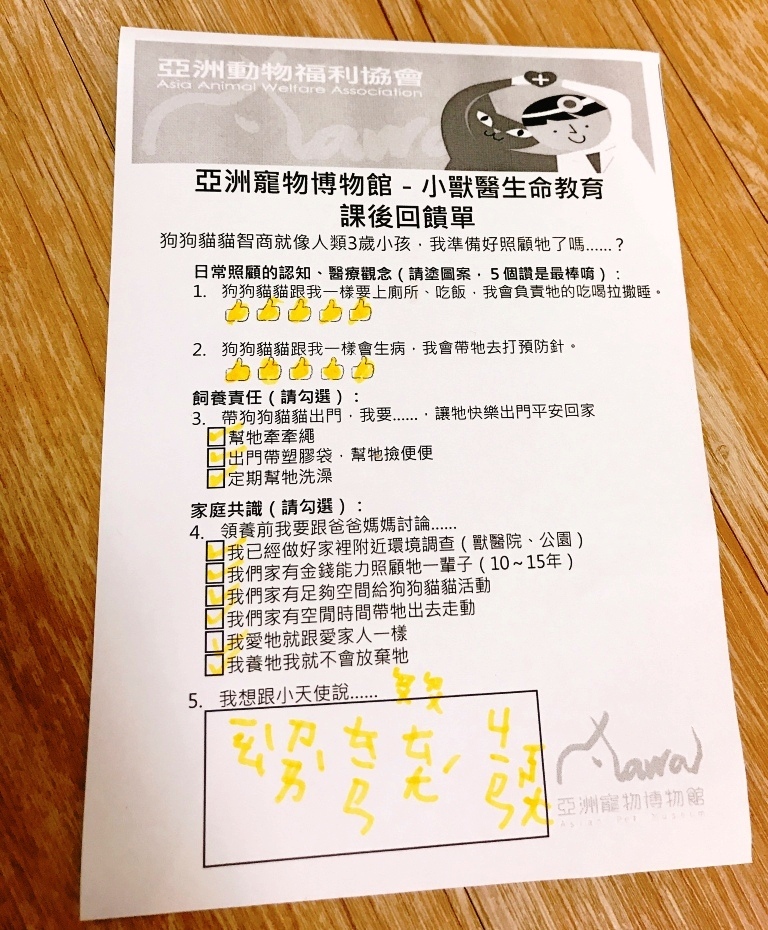 亞洲動物福利協會
Asia Animal Welfare Association
亞洲寵物博物館－小獸醫生命教育
課後回饋單
狗狗貓貓智商就像人類3歲小孩，我準備好照顧牠了嗎……？
日常照顧的認知、醫療觀念（請塗圖案，５個讚是最棒唷）：
1. 狗狗貓貓跟我一樣要上廁所、吃飯，我會負責牠的吃喝拉撒睡。
2. 狗狗貓貓跟我一樣會生病，我會帶牠去打預防針。
飼養責任（請勾選）：
3. 帶狗狗貓貓出門，我要……，讓牠快樂出門平安回家
幫牠牽牽繩
出門帶塑膠袋，幫牠撿便便
定期幫牠洗澡
家庭共識（請勾選）：
4. 領養前我要跟爸爸媽媽討論……
我已經做好家裡附近環境調查（獸醫院、公園）
我們家有金錢能力照顧牠一輩子（10～15年）
我們家有足夠空間給狗狗貓貓活動
我們家有空閒時間帶牠出去走動
我愛牠就跟愛家人一樣
我養牠我就不會放棄牠
5. 我想跟小天使說……
awa
亞洲寵物博物館
Asian Pet Museum